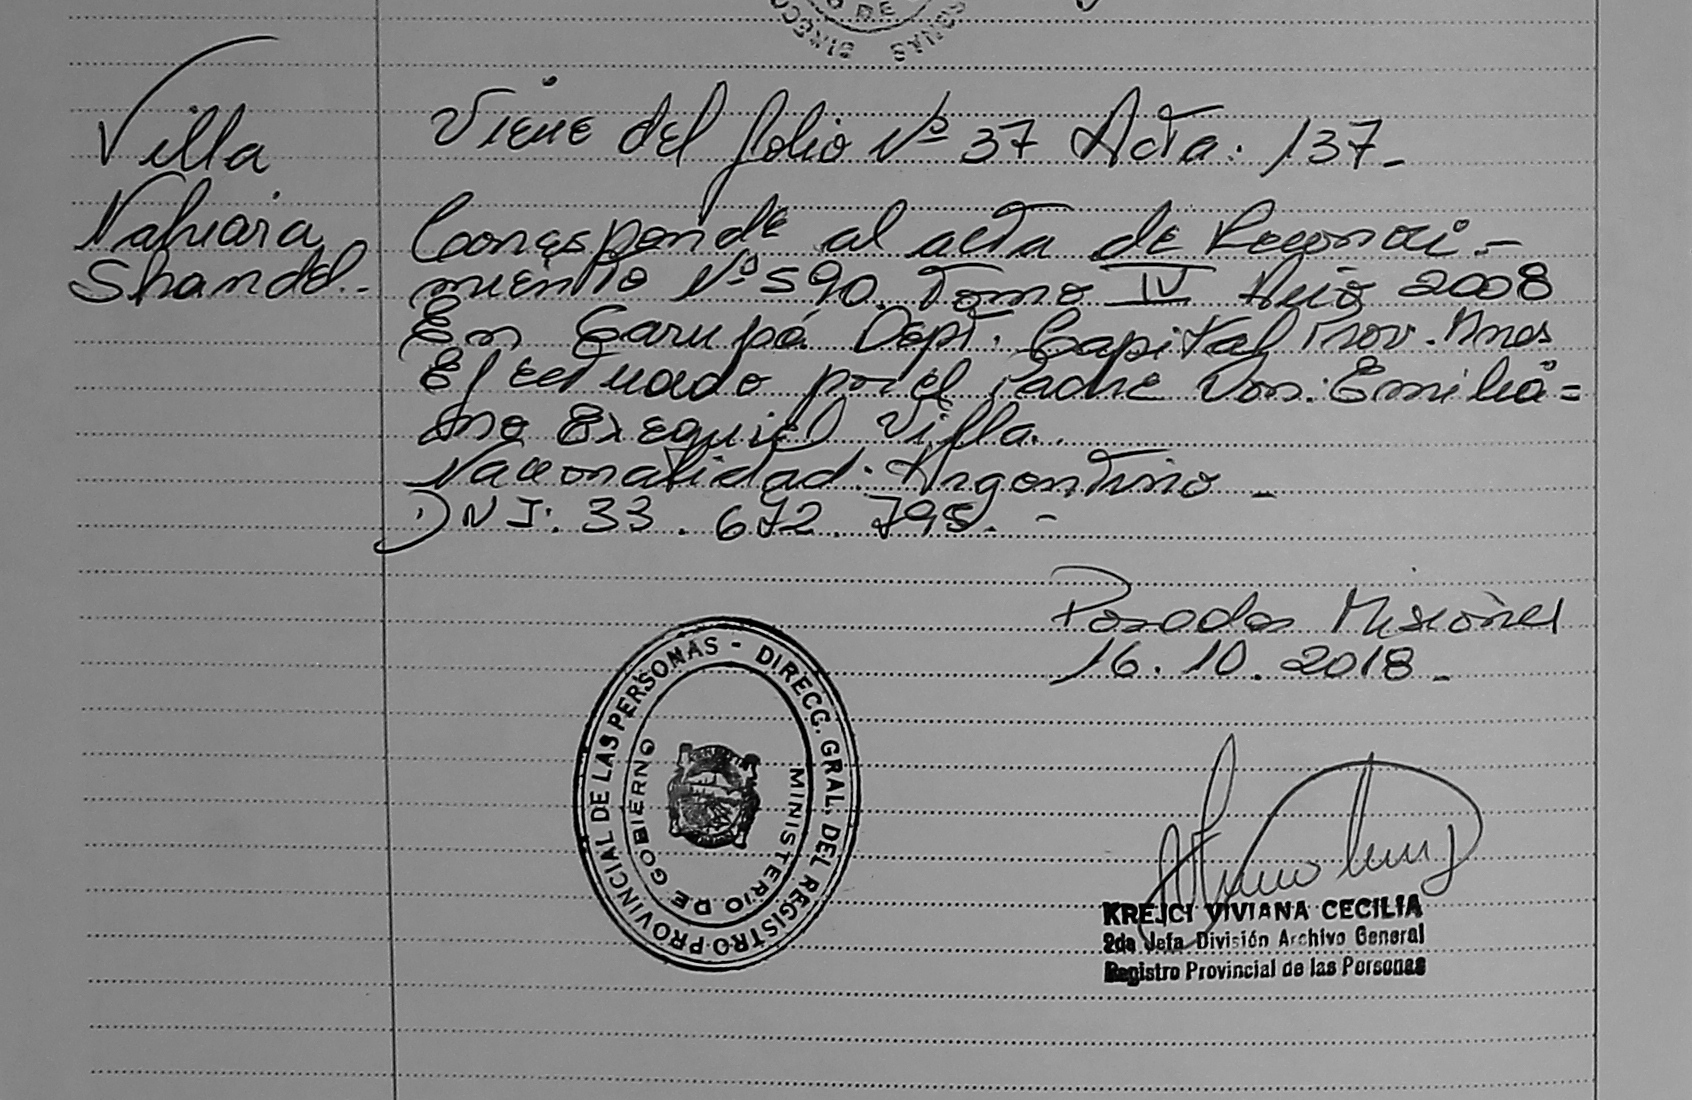 Villa
Nahiara
Shandel.
Viene del folio Nº 37 Acta: 137-
Corresponde al acta de Reconoci-
miento Nº 590. Tomo IV Año 2008
En Garupá Dept. Capital Prov. Mnes
Efectuado por el Padre Don: Emilia=
no Exequiel Villa.
Nacionalidad: Argentino -
DNI: 33.672.795. -
Posadas Misiones
16.10.2018 -
DIRECC. GRAL. DEL REGISTRO PROVINCIAL DE LAS PERSONAS -
MINISTERIO DE GOBIERNO
KREJCI VIVIANA CECILIA
2da Jefa División Archivo General
Registro Provincial de las Personas